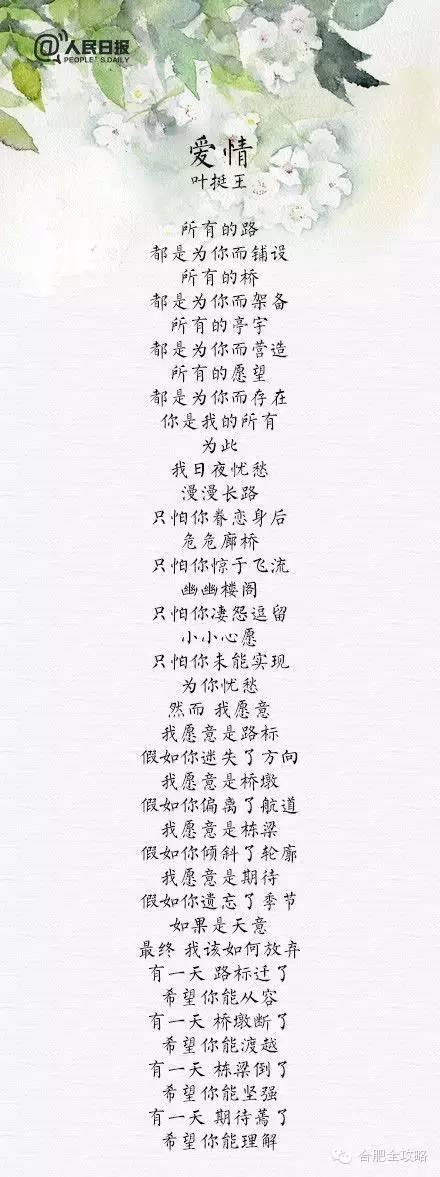 @人民日报
PEOPLE'S DAILY
爱情
叶挺王
所有的路
都是为你而铺设
所有的桥
都是为你而架备
所有的亭宇
都是为你而营造
所有的愿望
都是为你而存在
你是我的所有
为此
我日夜忧愁
漫漫长路
只怕你眷恋身后
危危廊桥
只怕你惊于飞流
幽幽楼阁
只怕你凄怨逗留
小小心愿
只怕你未能实现
为你忧愁
然而 我愿意
我愿意是路标
假如你迷失了方向
我愿意是桥墩
假如你偏离了航道
我愿意是栋梁
假如你倾斜了轮廓
我愿意是期待
假如你遗忘了季节
如果是天意
最终 我该如何放弃
有一天 路标迁了
希望你能从容
有一天 桥墩断了
希望你能渡越
有一天 栋梁倒了
希望你能坚强
有一天 期待蔫了
希望你能理解
合肥全攻略